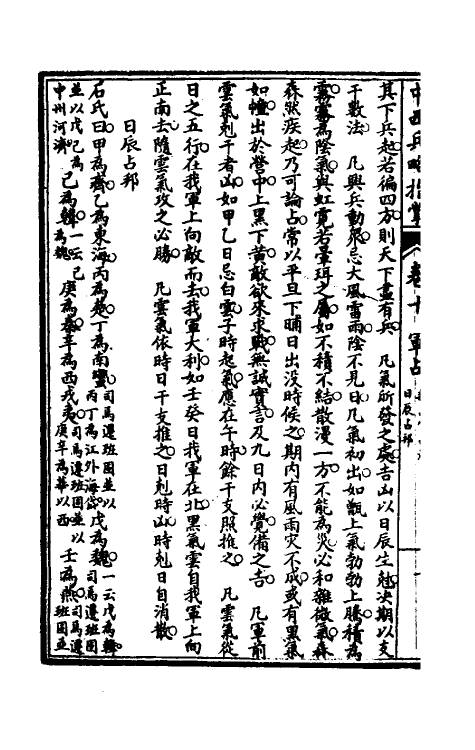 中西兵略指掌 卷十 軍占 日辰占邦
其下兵起若徧四方則天下盡有兵 凡氣所發之處吉凶以日辰生尅決期以支
干數法 凡興兵動衆忌大風雷雨陰不見日凡氣初出如甑上氣勃勃上騰積為
霧霧為陰氣與虹霓若暈珥之屬如不積不結散漫一方不能為災必和雜微氣森
森然疾起乃可論占常以平旦下晡日出没時候之期内有風雨灾不成或有黑氣
如幢出於營中上黑下黄敵欲來求戰無誠實言及九日内必覺備之吉 凡軍前
雲氣尅干者凶如甲乙日忌白雲子時起氣應在午時餘干支照推之 凡雲氣從
日之五行在我軍上向敵而去我軍大利如壬癸日我軍在北黑氣雲自我軍上向
正南去隨雲氣攻之必勝 凡雲氣依時日干支推之日尅時凶時尅日自消散
日辰占邦
石氏曰甲為齊乙為東海丙為楚丁為南蠻司馬遷班固並以丙丁為江外海岱戊為魏一云戊為韓司馬遷班固
並以戊己為中州河濟己為韓一云己為魏庚為秦辛為西戎夷司馬遷班固並以庚辛為華以西壬為燕司馬遷班固並